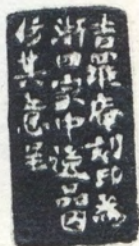 吉羅庵刻印為
浙四家中逸品因
仿其意星